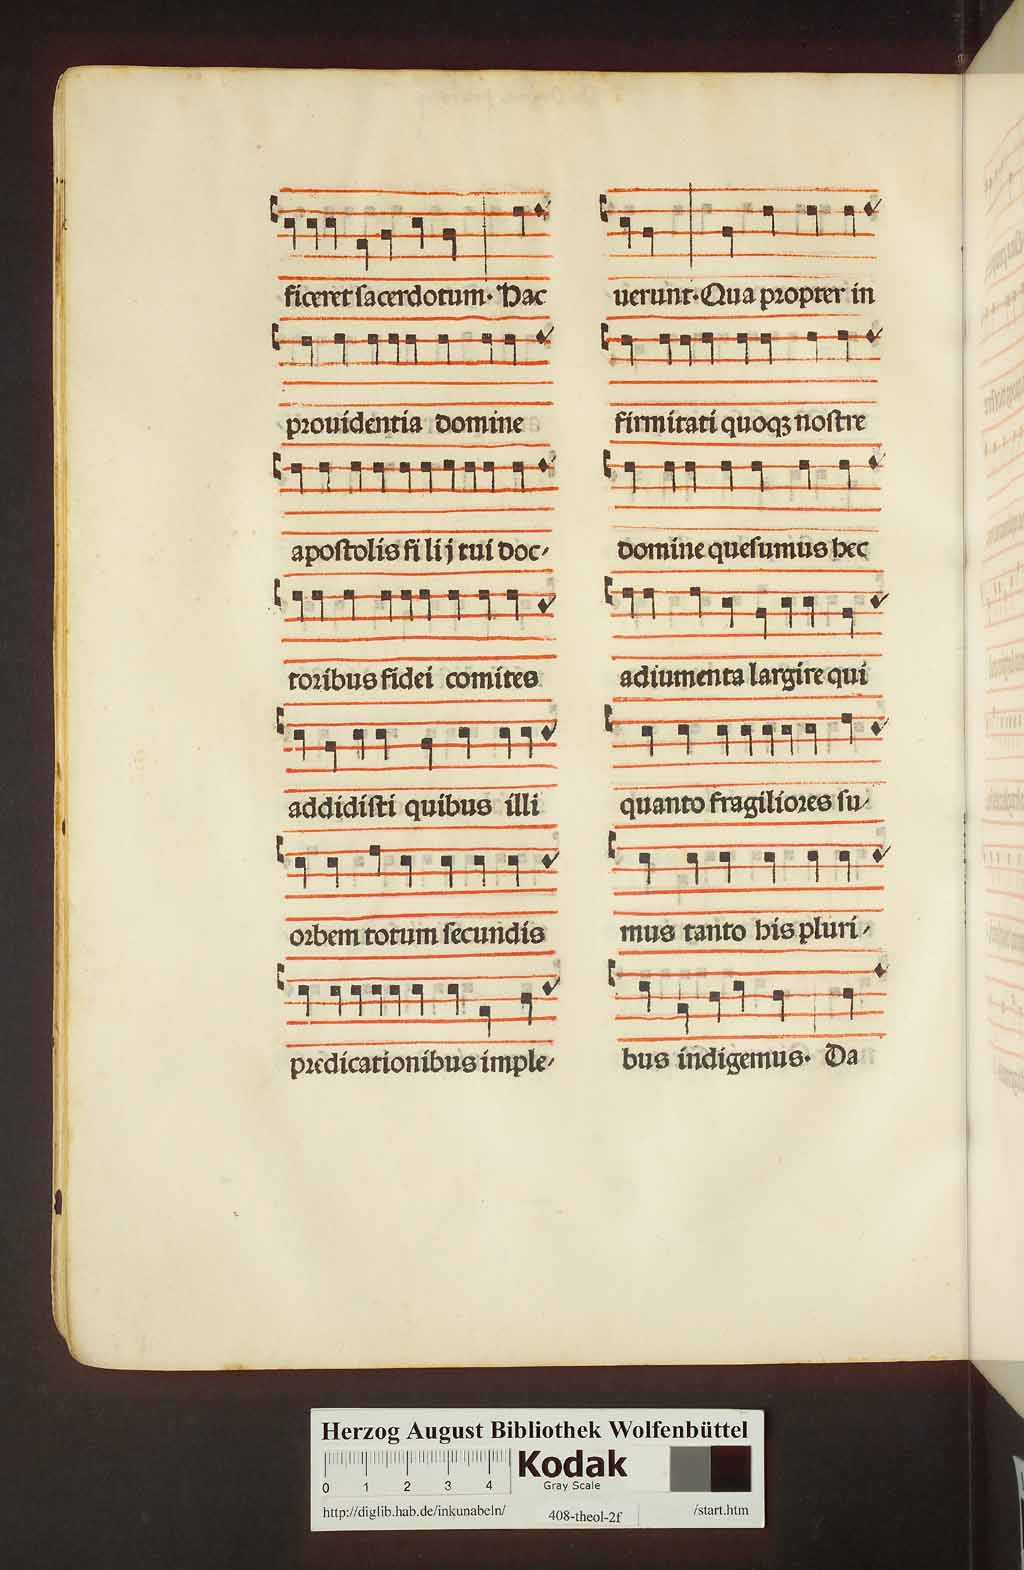 ficeret sacerdotum· Hac
prouidentia domine
apostolis fi li j tui doc⸗
toribus fidei comites
addidisti quibus illi
orbem totum secundis
predicationibus imple⸗
uerunt· Qua propter in
firmitati quoqꝫ nostre
domine quesumus hec
adiumenta largire qui
quanto fragiliores su⸗
mus tanto his pluri⸗
bus indigemus· Da
Herzog August Bibliothek Wolfenbüttel
0 1 2 3 4
Kodak
Gray Scale
http://diglib.hab.de/inkunabeln/ 408-theol-2f /start.htm